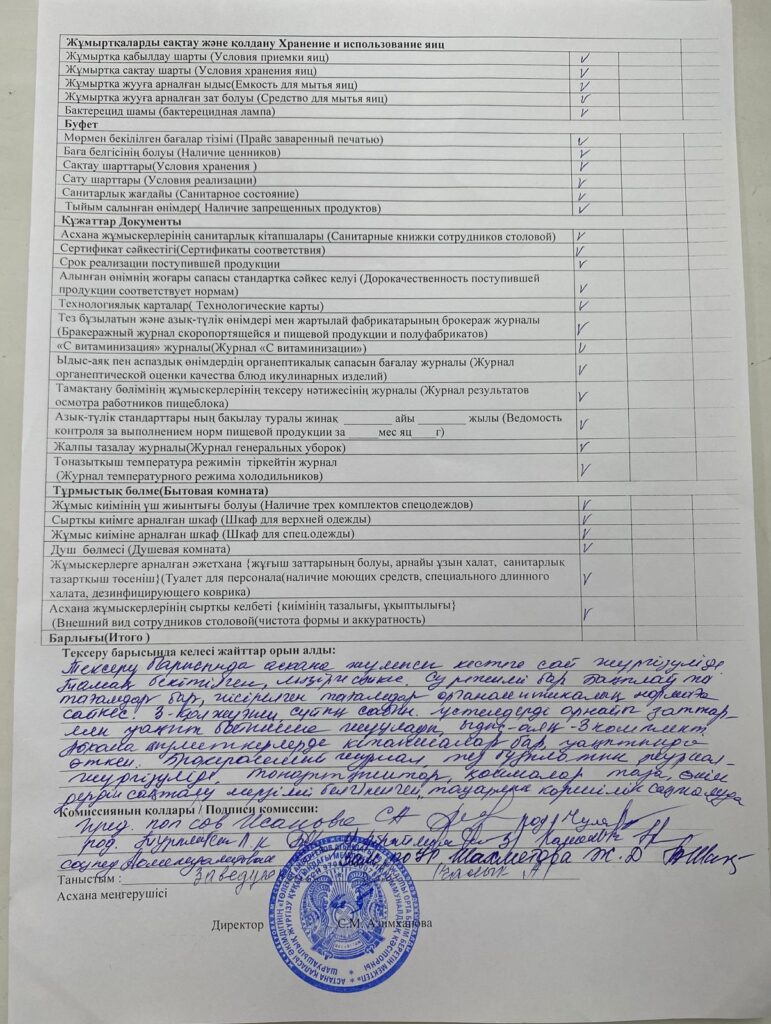 Жұмыртқаларды сақтау және қолдану Хранение и использование яиц
Жұмыртқа қабылдау шарты (Условия приемки яиц)
Жұмыртқа сақтау шарты (Условия хранения яиц)
Жұмыртқа жууға арналған ыдыс(Емкость для мытья яиц)
Жұмыртқа жууға арналған зат болуы (Средство для мытья яиц)
Бактерецид шамы (бактерецидная лампа)
Буфет
Мөрмен бекілілген бағалар тізімі (Прайс заваренный печатью)
Баға белгісінің болуы (Наличие ценников)
Сақтау шарттары(Условия хранения )
Сату шарттары (Условия реализации)
Санитарлық жағдайы (Санитарное состояние)
Тыйым салынған өнімдер( Наличие запрещенных продуктов)
Құжаттар Документы
Асхана жұмыскерлерінің санитарлық кітапшалары (Санитарные книжки сотрудников столовой)
Сертификат сәйкестігі(Сертификаты соответствия)
Срок реализации поступившей продукции
Алынған өнімнің жоғары сапасы стандартқа сәйкес келуі (Дорокачественность поступившей
продукции соответствует нормам)
Технологиялық карталар( Технологические карты)
Тез бұзылатын және азық-түлік өнімдері мен жартылай фабрикатарының брокераж журналы
(Бракеражный журнал скоропортящейся и пищевой продукции и полуфабрикатов)
«С витаминизация» журналы(Журнал «С витаминизации»)
Ыдыс-аяқ пен аспаздық өнімдердің органептикалық сапасын бағалау журналы (Журнал
органептической оценки качества блюд икулинарных изделий)
Тамақтану бөлімінің жұмыскерлерінің тексеру нәтижесінің журналы (Журнал результатов
осмотра работников пищеблока)
Азық-түлік стандарттары ның бақылау туралы жинақ ________ айы ________ жылы (Ведомость
контроля за выполнением норм пищевой продукции за _____мес яц ___г)
Жалпы тазалау журналы(Журнал генеральных уборок)
Тоназытқыш температура режимін тіркейтін журнал
(Журнал температурного режима холодильников)
Тұрмыстық бөлме(Бытовая комната)
Жұмыс киімінің үш жиынтығы болуы (Наличие трех комплектов спецодеждов)
Сыртқы киімге арналған шкаф (Шкаф для верхней одежды)
Жұмыс киіміне арналған шкаф (Шкаф для спец.одежды)
Душ бөлмесі (Душевая комната)
Жұмыскерлерге арналған әжетхана {жұғыш заттарының болуы, арнайы ұзын халат, санитарлық
тазартқыш төсеніш}(Туалет для персонала(наличие моющих средств, специального длинного
халата, дезинфицирующего коврика)
Асхана жұмыскерлерінің сыртқы келбеті {киімінің тазалығы, ұқыптылығы}
(Внешний вид сотрудников столовой(чистота формы и аккуратность)
Барлығы(Итого )
Тексеру барысында келесі жайттар орын алды:
Тексеру барысында асхана жұмысы кестеге сай жүргізуліде
Тамақ бекітілген, мәзірге сәйкес.
тағамдар бар, пісірілген тағамдар нормаға
сәйкес. 3-қолжуғыш, сұйық сабын. үстелдерде арнайы заттар-
мен уақыт бойынша жуулады, ыдыс-аяқ -3 комплект.
Асхана қызметкерлерде кітапшалар бар, уақытында
өткен. журнал, тез журнал
жүргізуліде, тоңазытқыштар, қоймалар таза,
сақталу мерзімі белгіленген, тауарлық көршілік сақталуда
Комиссияның қолдары / Подписи комиссии:
Пред. поп сов Исанова СА род.
род.
Шахметова Ж. Д
Таныстым :
Асхана меңгерушісі
Директор С.М. Азимханова